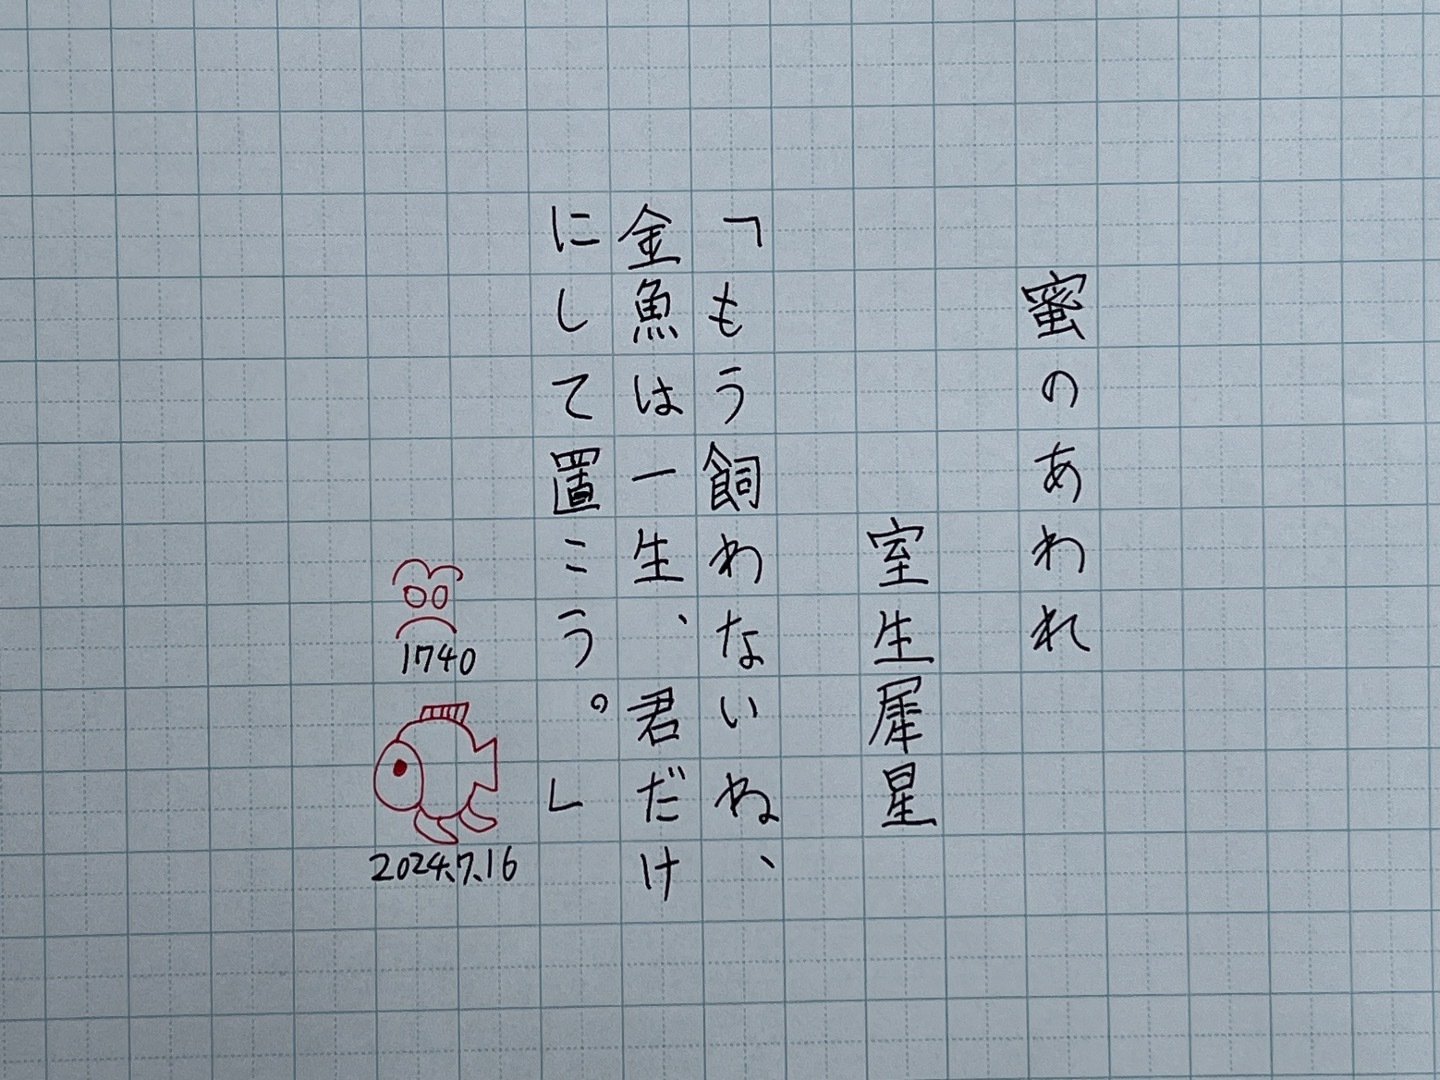 蜜のあわれ
室生犀星
「もう飼わないね、
金魚は一生、君だけ
にして置こう。」
1740
2024.7.16